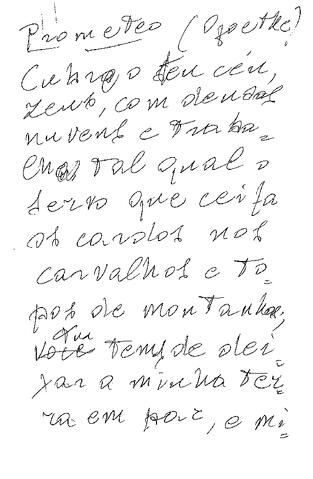 Prometeo (Goethe)
Cubra o teu céu,
Zeus, com densas
nuvens e traba=
lha tal qual o
servo que ceifa
os cardos nos
carvalhos e to=
pos de montanha,
tu
você tens de dei=
xar a minha ter=
ra em paz, e mi=